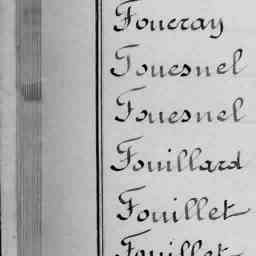 Foucray
Fouesnel
Fouesnel
Fouillard
Fouillet
Fouillet